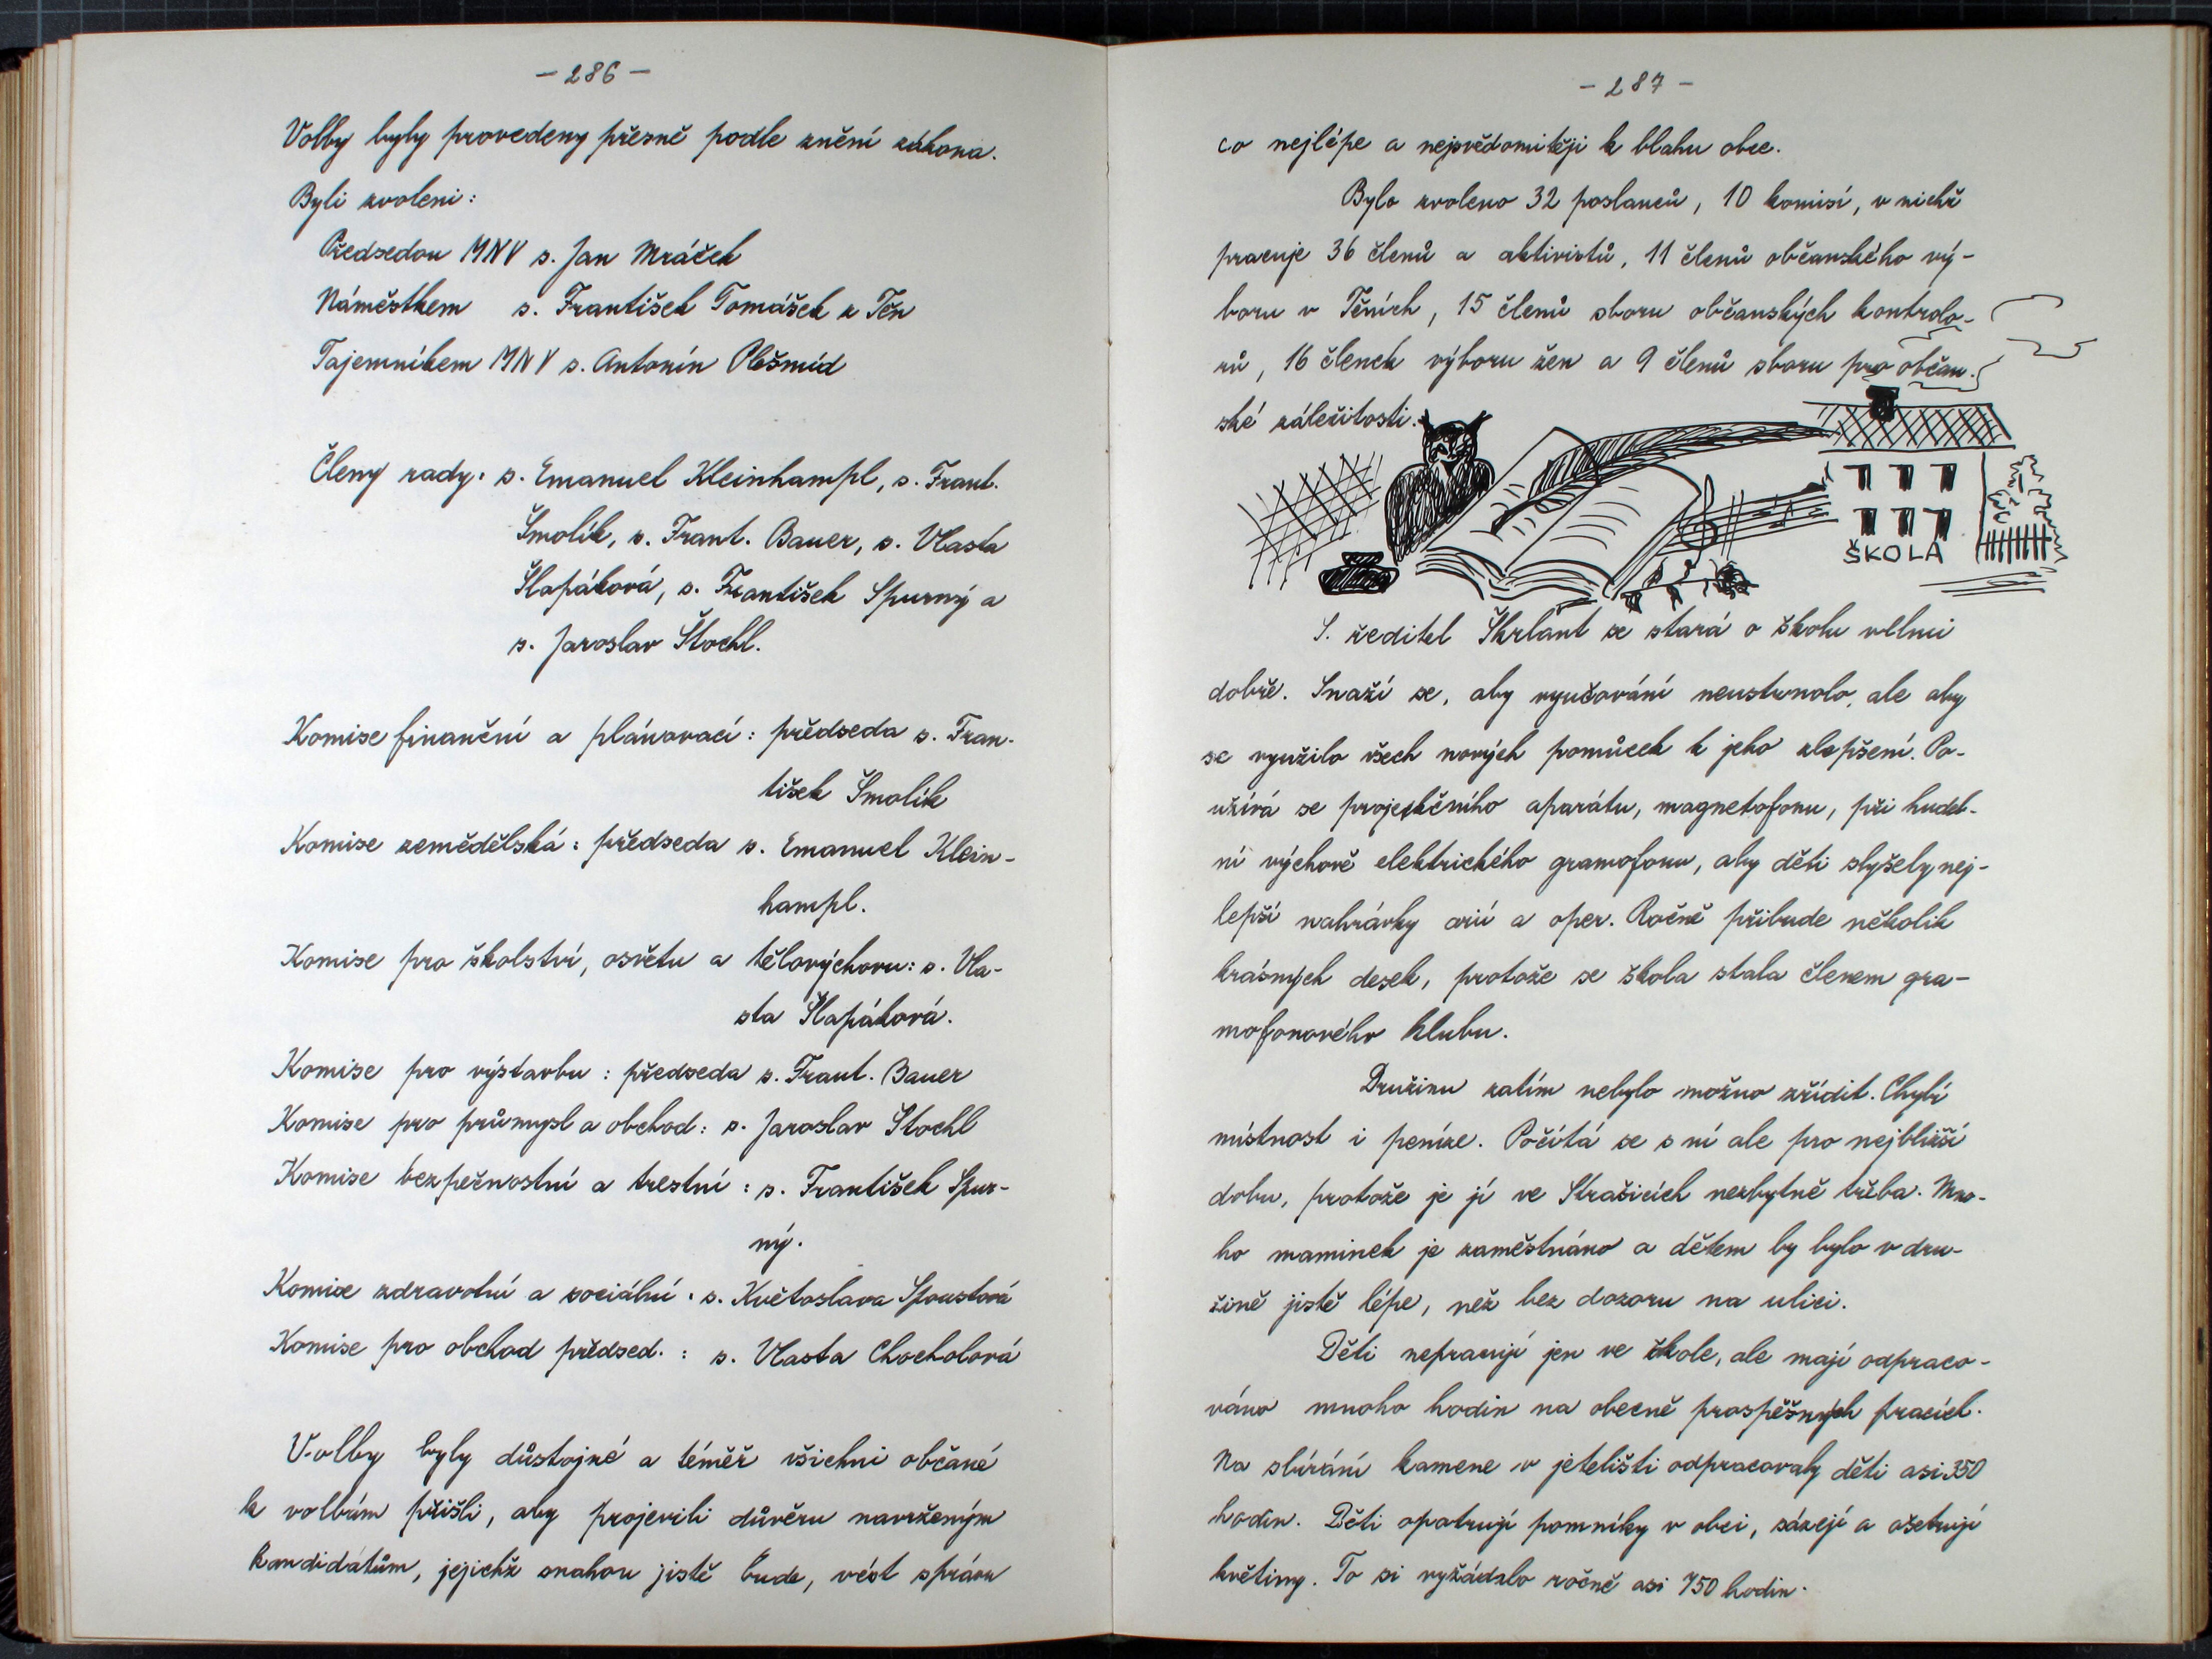 - 286 -
Volby byly provedeny přesně podle znění zákona.
Byli zvoleni:
Předsedou MNV s. Jan Mráček
Náměstkem s. František Tomášek z Těn
Tajemníkem MNV s. Antonín Plešmíd
Členy rady: s. Emanuel Kleinhampl, s. Frant.
Šmolík, s. Frant. Bauer, s. Vlasta
Šlapáková, s. František Spurný a
s. Jaroslav Štochl.
Komise finanční a plánovací: předseda s. Fran-
tišek Šmolík
Komise zemědělská: předseda s. Emanuel Klein-
hampl.
Komise pro školství, osvětu a tělovýchovu: s. Vla-
sta Šlapáková.
Komise pro výstavbu: předseda s. Frant. Bauer
Komise pro průmysl a obchod: s. Jaroslav Štochl
Komise bezpečnostní a trestní: s. František Spur-
ný.
Komise zdravotní a sociální: s. Květoslava Spoustová
Komise pro obchod předsed.: s. Vlasta Chocholová
Volby byly důstojné a téměř všichni občané
k volbám přišli, aby projevili důvěru navrženým
kandidátům, jejichž snahou jistě bude, vést správu
- 287 -
co nejlépe a nejsvědomitěji k blahu obce.
Bylo zvoleno 32 poslanců, 10 komisí, v nichž
pracuje 36 členů a aktivistů, 11 členů občanského vý-
boru v Těních, 15 členů sboru občanských kontrolo-
rů, 16 členek výboru žen a 9 členů sboru pro občan-
ské záležitosti.
ŠKOLA
S. ředitel Škrlant se stará o školu velmi
dobře. Snaží se, aby vyučování neustrnulo, ale aby
se využilo všech nových pomůcek k jeho zlepšení. Po-
užívá se projekčního aparátu, magnetofonu, při hudeb-
ní výchově elektrického gramofonu, aby děti slyšely nej-
lepší nahrávky arií a oper. Ročně přibude několik
krásných desek, protože se škola stala členem gra-
mofonového klubu.
Družinu zatím nebylo možno zřídit. Chybí
místnost i peníze. Počítá se s ní ale pro nejbližší
dobu, protože je jí ve Strašicích nezbytně třeba. Mno-
ho maminek je zaměstnáno a dětem by bylo v dru-
žině jistě lépe, než bez dozoru na ulici.
Děti nepracují jen ve škole, ale mají odpraco-
váno mnoho hodin na obecně prospěšných pracích.
Na sbírání kamene v jetelišti odpracovaly děti asi 350
hodin. Děti opatrují pomníky v obci, sázejí a ošetrují
květiny. To si vyžádalo ročně asi 750 hodin.